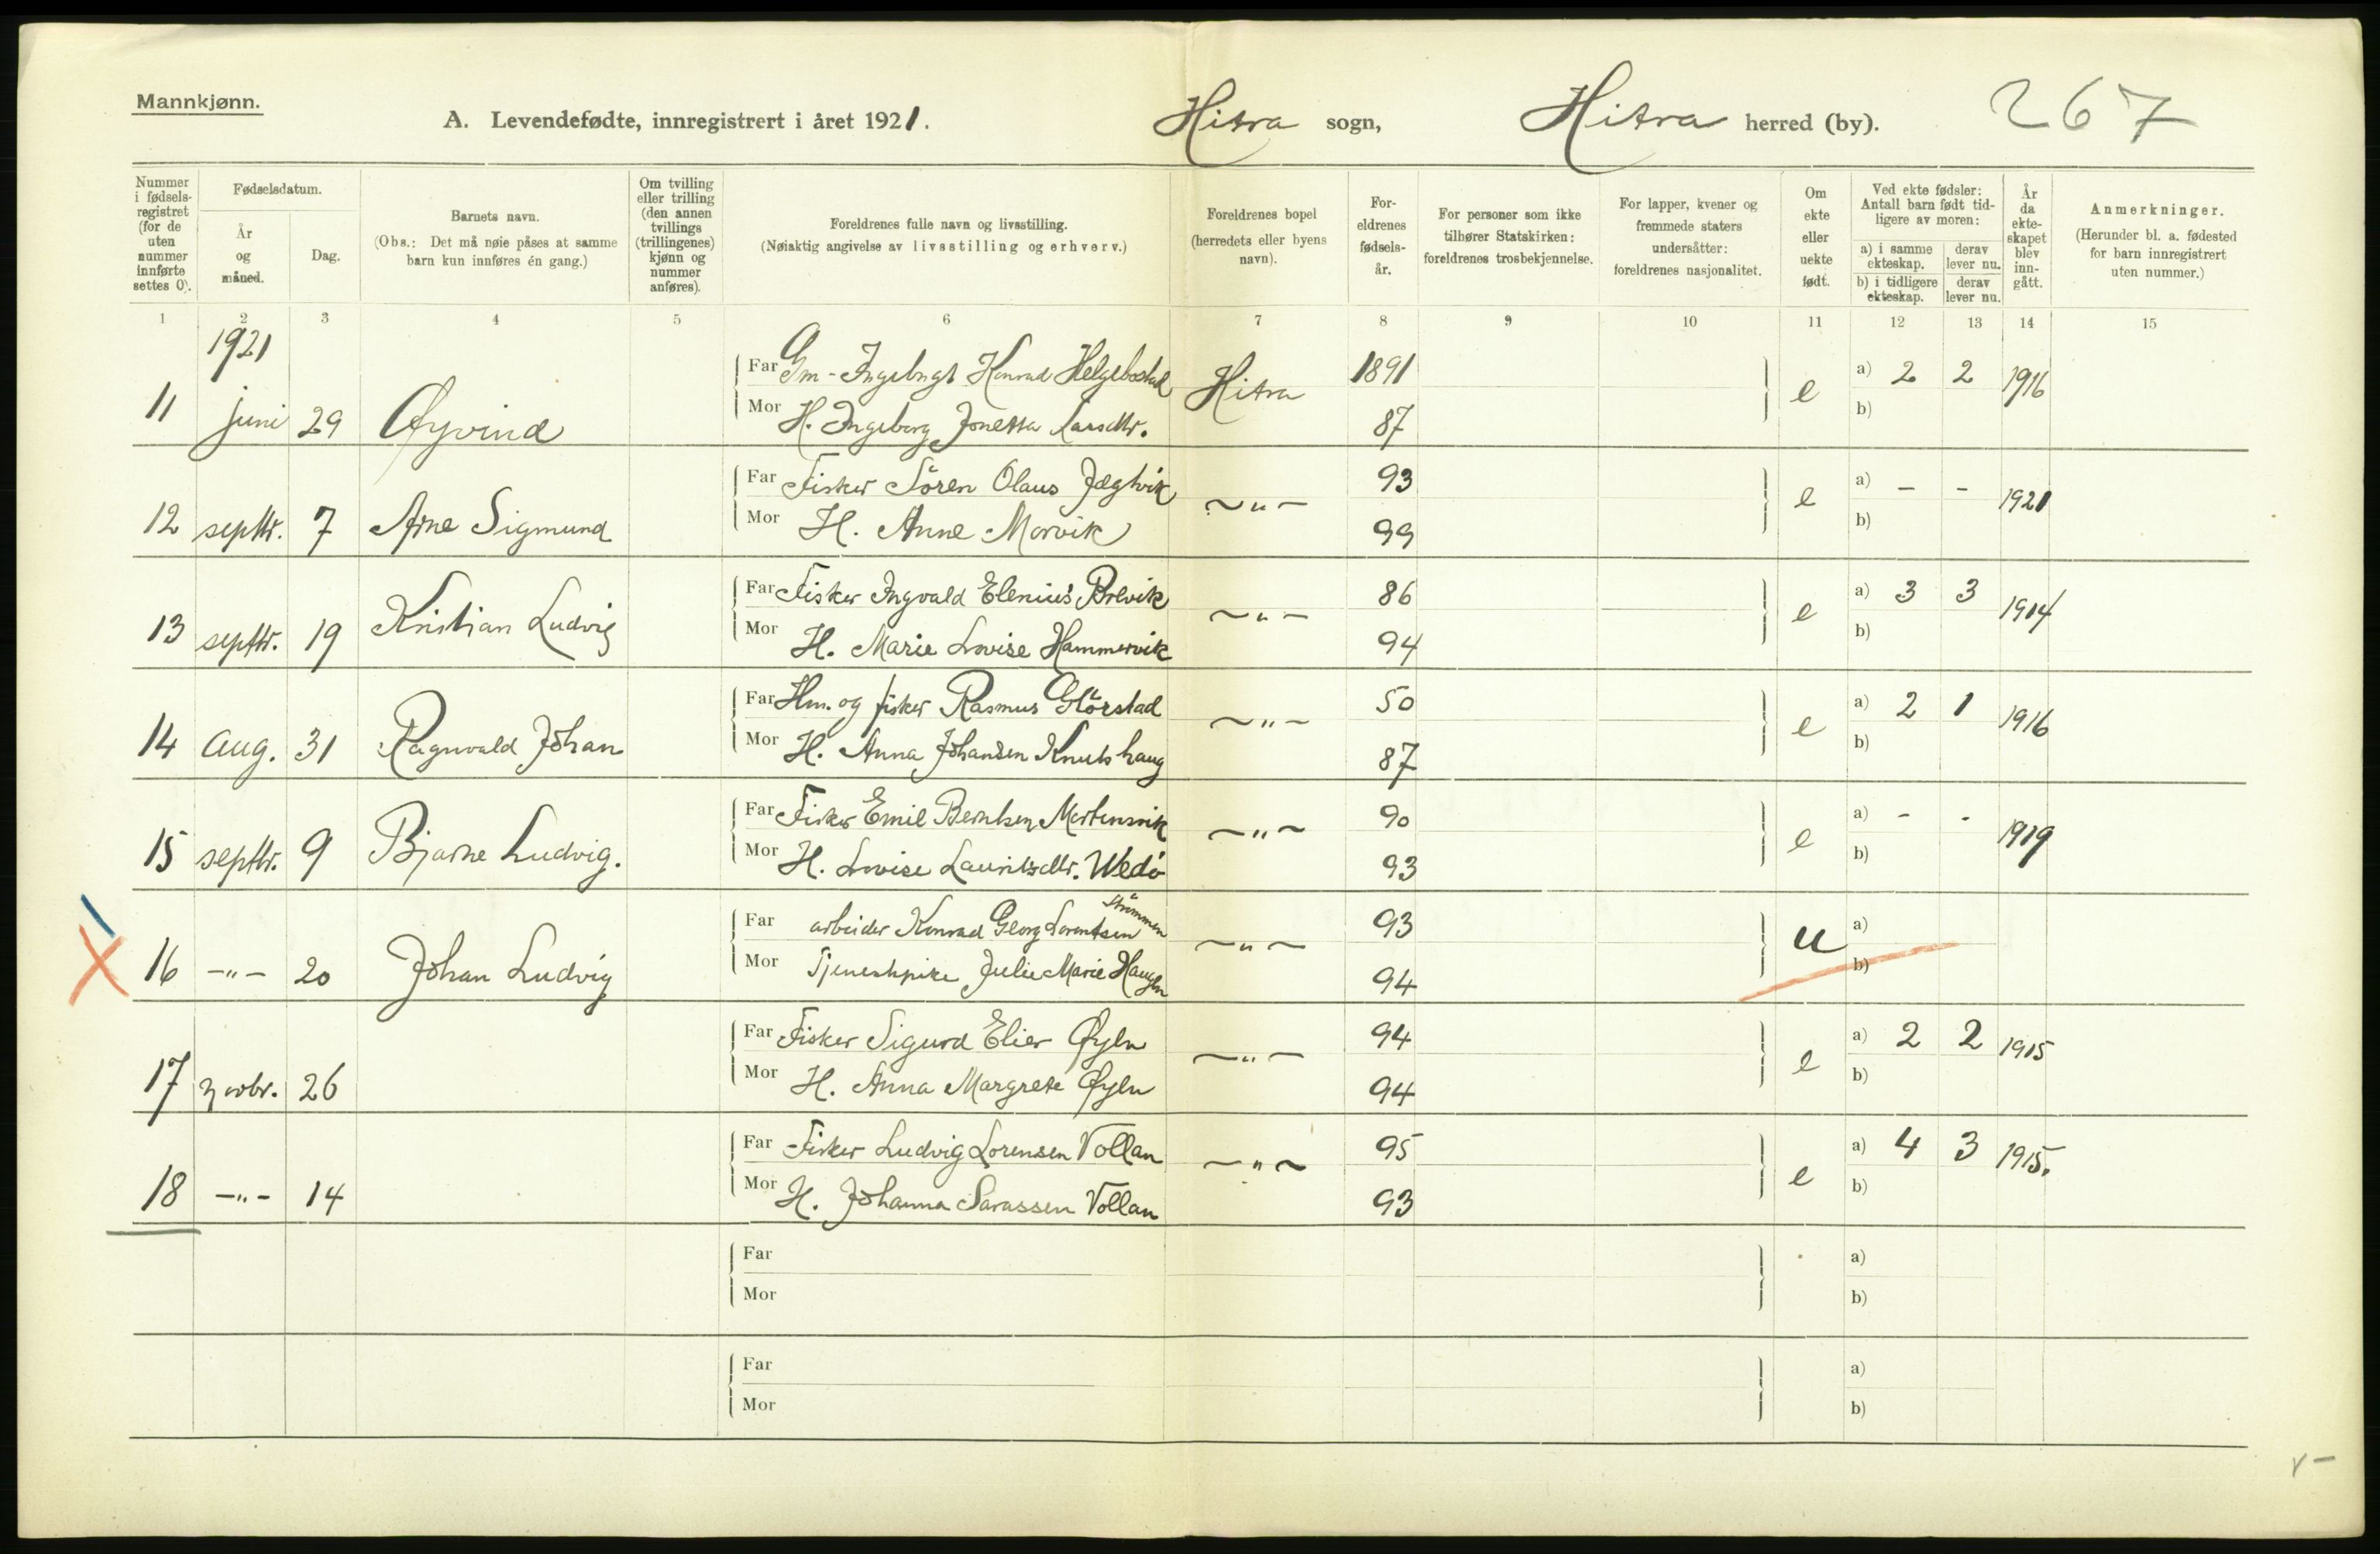 Mannkjønn.
A. Levendefødte, innregistrert i året 1921.
Hitra sogn,
Hitra herred (by).
267
Nummer i fødsels-registret (for de uten nummer innførte settes 0).
Fødselsdatum.
År og måned.
Dag.
Barnets navn.
(Obs.: Det må nøie påses at samme barn kun innføres én gang.)
Om tvilling eller trilling (den annen tvillings (trillingenes) kjønn og nummer anføres).
Foreldrenes fulle navn og livsstilling.
(Nøiaktig angivelse av livsstilling og erhverv.)
Foreldrenes bopel (herredets eller byens navn).
For-eldrenes fødsels-år.
For personer som ikke tilhører Statskirken: foreldrenes trosbekjennelse.
For lapper, kvener og fremmede staters undersåtter: foreldrenes nasjonalitet.
Om ekte eller uekte født.
Ved ekte fødsler: Antall barn født tid-ligere av moren:
a) i samme ekteskap. derav lever nu.
b) i tidligere ekteskap. derav lever nu.
År da ekte-skapet blev inn-gått.
Anmerkninger.
(Herunder bl. a. fødested for barn innregistrert uten nummer.)
1 2 3 4 5 6 7 8 9 10 11 12 13 14 15
1921
Far Gm - Ingebrigt Konrad Helgebostad Hitra 1891 a) 2 2 1916
11 juni 29 Øyvind Mor H. Ingeborg Jonetta Larsdtr. 87 e b)
Far Fisker Sören Olaus Jægtvik 93 a) - - 1921
12 septbr. 7 Arne Sigmund Mor H. Anne Morvik -"- 99 e b)
Far Fisker Ingvald Elenius Brevik 86 a) 3 3 1914
13 septbr. 19 Kristian Ludvig Mor H. Marie Lovise Hammervik -"- 94 e b)
Far Hm. og fisker Rasmus Glörstad 50 a) 2 1 1916
14 Aug. 31 Ragnvald Johan Mor H. Anna Johansen Knutshaug -"- 87 e b)
Far Fisker Emil Berntsen Mortensvik 90 a) - - 1919
15 septbr. 9 Bjarne Ludvig. Mor H. Lovise Lauritsdtr. Wedö -"- 93 e b)
Far arbeider Konrad Georg Lorentsen Strömmen 93 a)
16 -"- 20 Johan Ludvig Mor Tjenestpike Julie Marie Haugen -"- 94 u b)
Far Fisker Sigurd Elier Øyen 94 a) 2 2 1915
17 novbr. 26 Mor H. Anna Margrete Øyen -"- 94 e b)
Far Fisker Ludvig Lorensen Vollan 95 a) 4 3 1915.
18 -"- 14 Mor H. Johanna Sarassen Vollan -"- 93 e b)
Far a)
Mor b)
Far a)
Mor b)